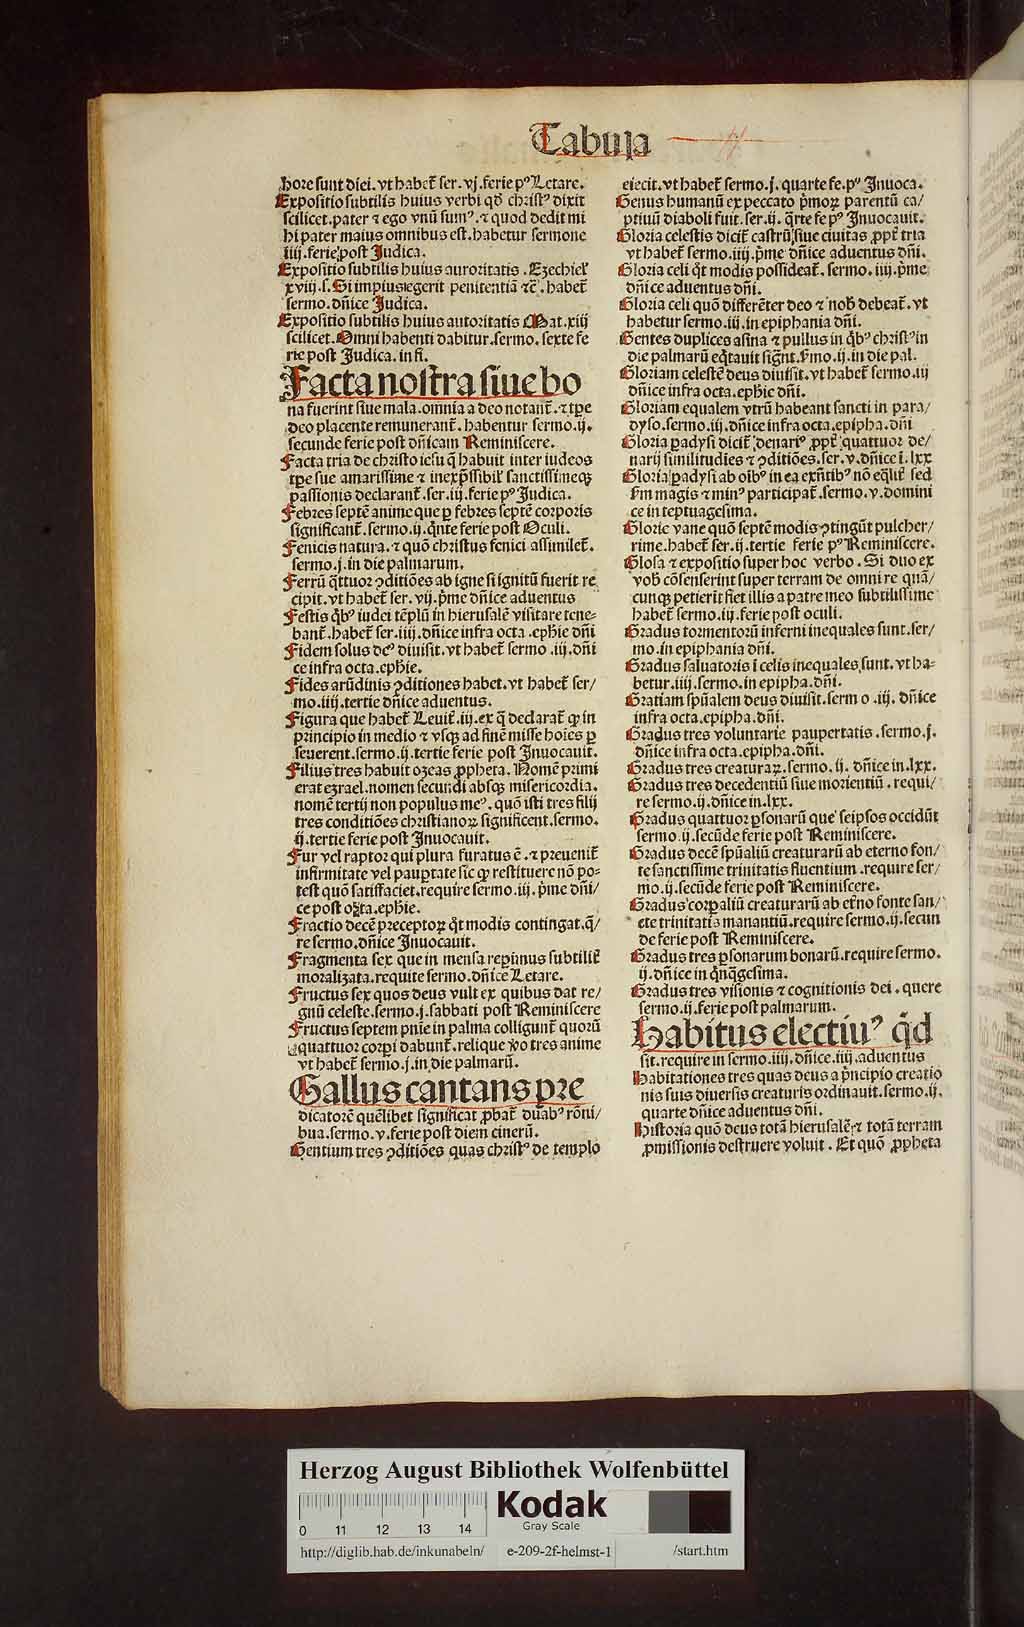 Tabula
hore sunt diei. vt habet̃ ser. vj. ferie pꝰ Letare.
Expositio subtilis huius verbi qd̃ christꝰ dixit
scilicet. pater ⁊ ego vnũ sumꝰ. ⁊ quod dedit mi
hi pater maius omnibus est. habetur sermone
iiij. ferie post Judica.
Expositio subtilis huius auroritatis. Ezechiel̃
xviij. s. Si impius egerit penitentiã ⁊c̃. habet̃
sermo. dñice Judica.
Expositio subtilis huius autoritatis Mat. xiij
scilicet. Omni habenti dabitur. sermo. sexte fe
rie post Judica. in fi.
Facta nostra siue bo
na fuerint siue mala. omnia a deo notant̃. ⁊ tp̃e
deo placente remunerant̃. habentur sermo. ij.
secunde ferie post dñicam Reminiscere.
Facta tria de christo iesu q̃ habuit inter iudeos
tp̃e sue amarissime ⁊ inexp̃ssibil̃ sanctissimeqꝫ
passionis declarant̃. ser. iij. ferie pꝰ Judica.
Febres septẽ anime que ꝑ febres septẽ corporis
significant̃. sermo. ij. q̃nte ferie post Oculi.
Fenicis natura. ⁊ quõ christus fenici assimilet̃.
sermo. j. in die palmarum.
Ferrũ q̃ttuor ꝯditiões ab igne si ignitũ fuerit re
cipit. vt habet̃ ser. vij. p̃me dñice aduentus
Festis q̃bꝰ iudei tẽplũ in hierusalẽ visitare tene-
bant̃. habet̃ ser. iiij. dñice infra octa. ephie dñi
Fidem solus deꝰ diuisit. vt habet̃ sermo. iij. dñi
ce infra octa. ephie.
Fides arũdinis ꝯditiones habet. vt habet̃ ser/
mo. iiij. tertie dñice aduentus.
Figura que habet̃ Leuit̃. iij. ex q̃ declarat̃ ꝙ in
principio in medio ⁊ vsqꝫ ad finẽ misse hoĩes ꝑ
seuerent. sermo. ij. tertie ferie post Inuocauit.
Filius tres habuit ozeas ꝓpheta. Nomẽ primi
erat ezrael. nomen secundi absqꝫ misericordia.
nomẽ tertij non populus meꝰ. quõ isti tres filij
tres conditiões christianoꝝ significent. sermo.
ij. tertie ferie post Inuocauit.
Fur vel raptor qui plura furatus ẽ. ⁊ preuenit̃
infirmitate vel paupertate sic ꝙ restituere nõ po-
test quõ satisfaciet. require sermo. iij. p̃me dñi/
ce post octa. ephie.
Fractio decẽ preceptoꝝ q̃t modis contingat. q̃/
re sermo. dñice Inuocauit.
Fragmenta sex que in mensa reperimus subtilit̃
moralizata. requite sermo. dñice Letare.
Fructus sex quos deus vult ex quibus dat re/
gnũ celeste. sermo. j. sabbati post Reminiscere
Fructus septem pñie in palma colligunt̃ quorũ
quattuor corpi dabunt̃. relique vo tres anime
vt habet̃ sermo. j. in die palmarũ.
Gallus cantans pre
dicatorẽ quẽlibet significat ꝓbat̃ duabꝰ rõni/
bua. sermo. v. ferie post diem cinerũ.
Gentium tres ꝯditiões quas christꝰ de templo
eiecit. vt habet̃ sermo. j. quarte fe. pꝰ Inuoca.
Genus humanũ ex peccato p̃moꝝ parentũ ca/
ptiuũ diaboli fuit. ser. ij. q̃rte fe pꝰ Inuocauit.
Gloria celestis dicit̃ castrũ siue ciuitas ꝓpt̃ tria
vt habet̃ sermo. iiij. p̃me dñice aduentus dñi.
Gloria celi q̃t modis possideat̃. sermo. iiij. p̃me
dñice aduentus dñi.
Gloria celi quõ differẽter deo ⁊ nob̃ debeat̃. vt
habetur sermo. iij. in epiphania dñi.
Gentes duplices asina ⁊ pullus in q̃bꝰ christꝰ in
die palmarũ eq̃tauit sigñt. s̃mo. ij. in die pal.
Gloriam celestẽ deus diuisit. vt habet̃ sermo. iij
dñice infra octa. ephie dñi.
Gloriam equalem vtrũ habeant sancti in para/
dyso. sermo. iij. dñice infra octa. epipha. dñi
Gloria ꝑadysi dicit̃ denariꝰ ꝓpt̃ quattuor de/
narij similitudĩes ⁊ ꝯditiões. ser. v. dñice ĩ. lxx
Gloria ꝑadysi ab oĩbꝰ in ea exñtibꝰ nõ eq̃lit̃ sed
s̃m magis ⁊ minꝰ participat̃. sermo. v. domini
ce in septuagesima.
Glorie vane quõ septẽ modis ꝯtingũt pulcher/
rime. habet̃ ser. ij. tertie ferie pꝰ Reminiscere.
Glosa ⁊ expositio super hoc verbo. Si duo ex
vob̃ cõsenserint super terram de omni re quã/
cunqꝫ petierit fiet illis a patre meo subtilissime
habet̃ sermo. iij. ferie post oculi.
Gradus tormentorũ inferni inequales sunt. ser/
mo. in epiphania dñi.
Gradus saluatoris ĩ celis inequales sunt. vt ha-
betur. iiij. sermo. in epipha. dñi.
Gratiam spũalem deus diuisit. sermo. iij. dñice
infra octa. epipha. dñi.
Gradus tres voluntarie paupertatis. sermo. j.
dñice infra octa. epipha. dñi.
Gradus tres creaturaꝝ. sermo. ij. dñice in. lxx.
Gradus tres decedentiũ siue morientiũ. requi/
re sermo. ij. dñice in. lxx.
Gradus quattuor ꝑsonarũ que seipsos occidũt
sermo. ij. secũde ferie post Reminiscere.
Gradus decẽ spũaliũ creaturarũ ab eterno fon/
te sanctissime trinitatis fluentium. require ser/
mo. ij. secũde ferie post Reminiscere.
Gradus corꝑaliũ creaturarũ ab et̃no fonte san/
cte trinitatis manantiũ. require sermo. ij. secun
de ferie post Reminiscere.
Gradus tres ꝑsonarum bonarũ. require sermo.
ij. dñice in q̃nq̃gesima.
Gradus tres visionis ⁊ cognitionis dei. quere
sermo. ij. ferie post palmarum.
Habitus electiuꝰ q̃d
sit. require in sermo. iiij. dñice. iiij. aduentus
Habitationes tres quas deus a p̃ncipio creatio
nis suis diuersis creaturis ordinauit. sermo. ij.
quarte dñice aduentus dñi.
Historia quõ deus totã hierusalẽ ⁊ totã terram
ꝓmissionis destruere voluit. Et quõ ꝓpheta
Herzog August Bibliothek Wolfenbüttel
Kodak
Gray Scale
0 11 12 13 14
http://diglib.hab.de/inkunabeln/ e-209-2f-helmst-1 /start.htm